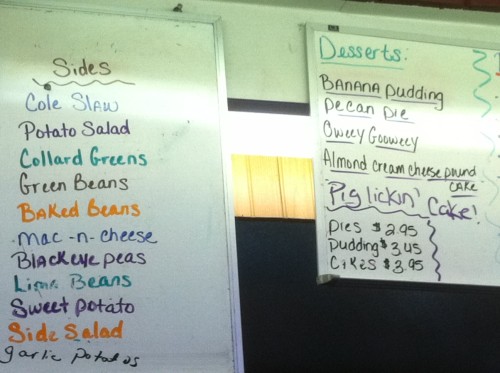 Sides
Cole Slaw
Potato Salad
Collard Greens
Green Beans
Baked Beans
mac-n-cheese
Blackeye peas
Lima Beans
Sweet potato
Side Salad
garlic potatos
Desserts:
BANANA pudding
pecan pie
Oweey Gooweey
Almond cream cheese pound
CAKE
Pig lickin' Cake!
pies $2.95
pudding $3.45
Cakes $3.95